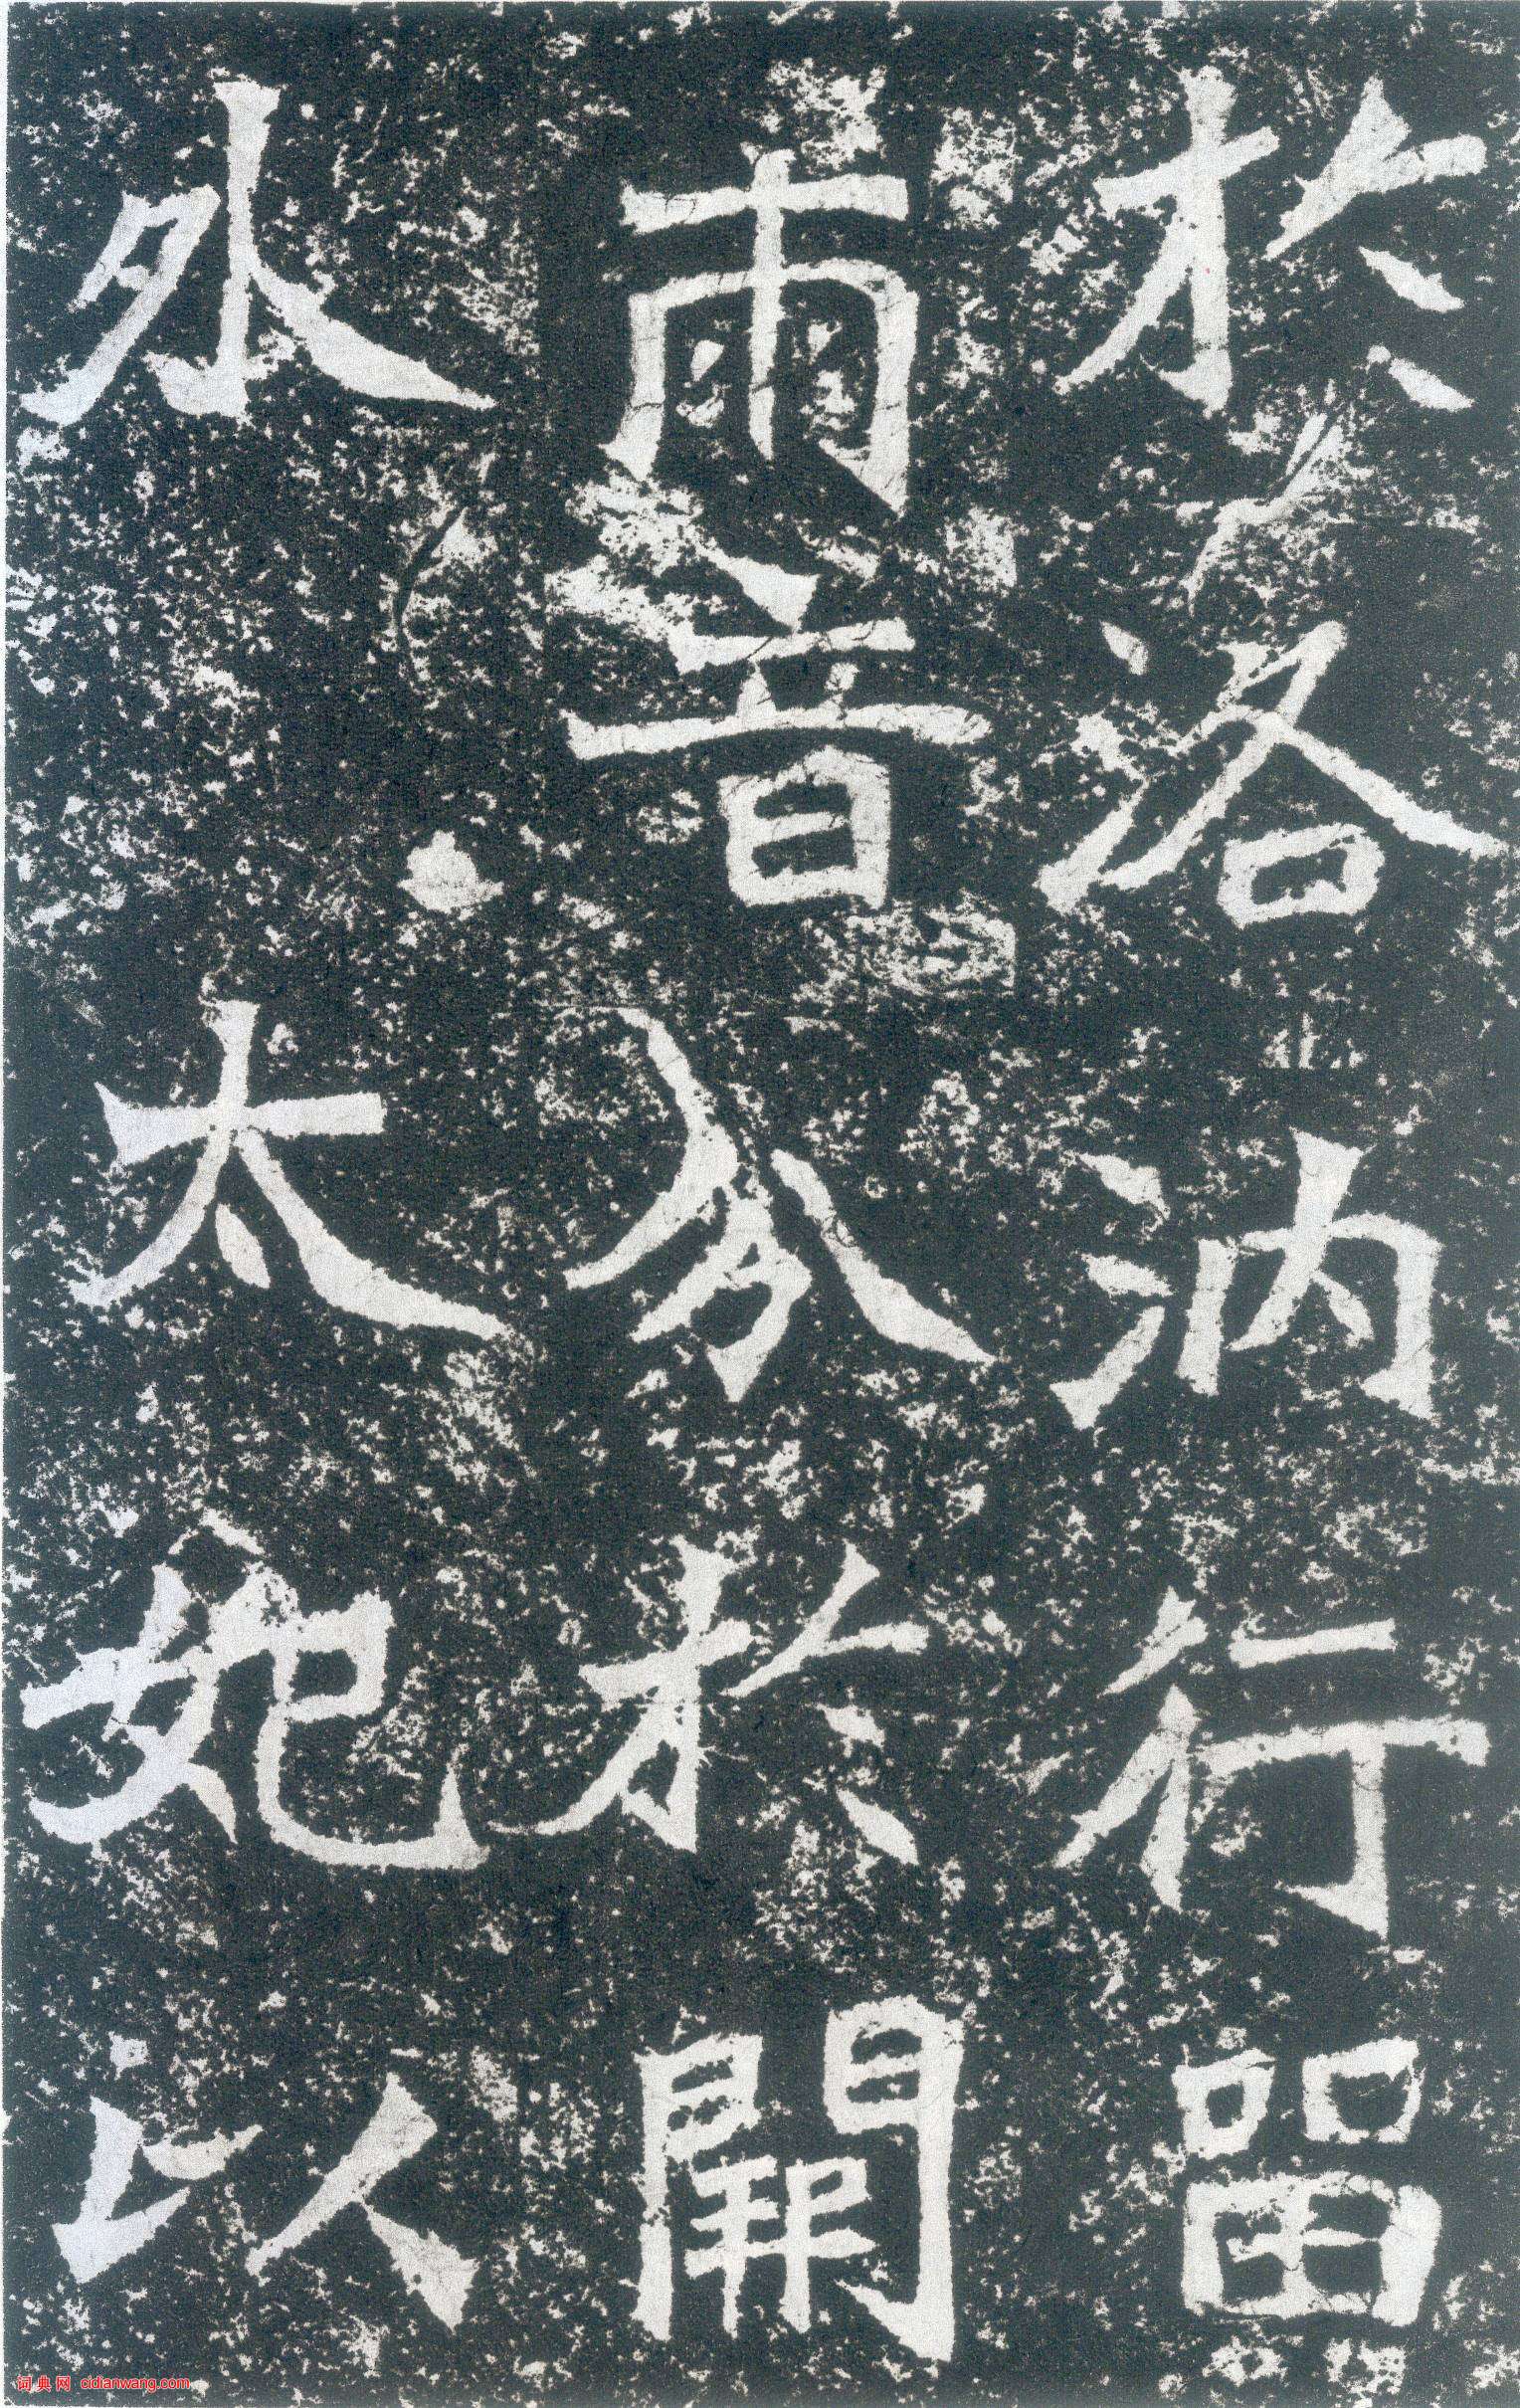 於洛汭行留
兩音分於闕
外太妃以
词典网 cidianwang.com